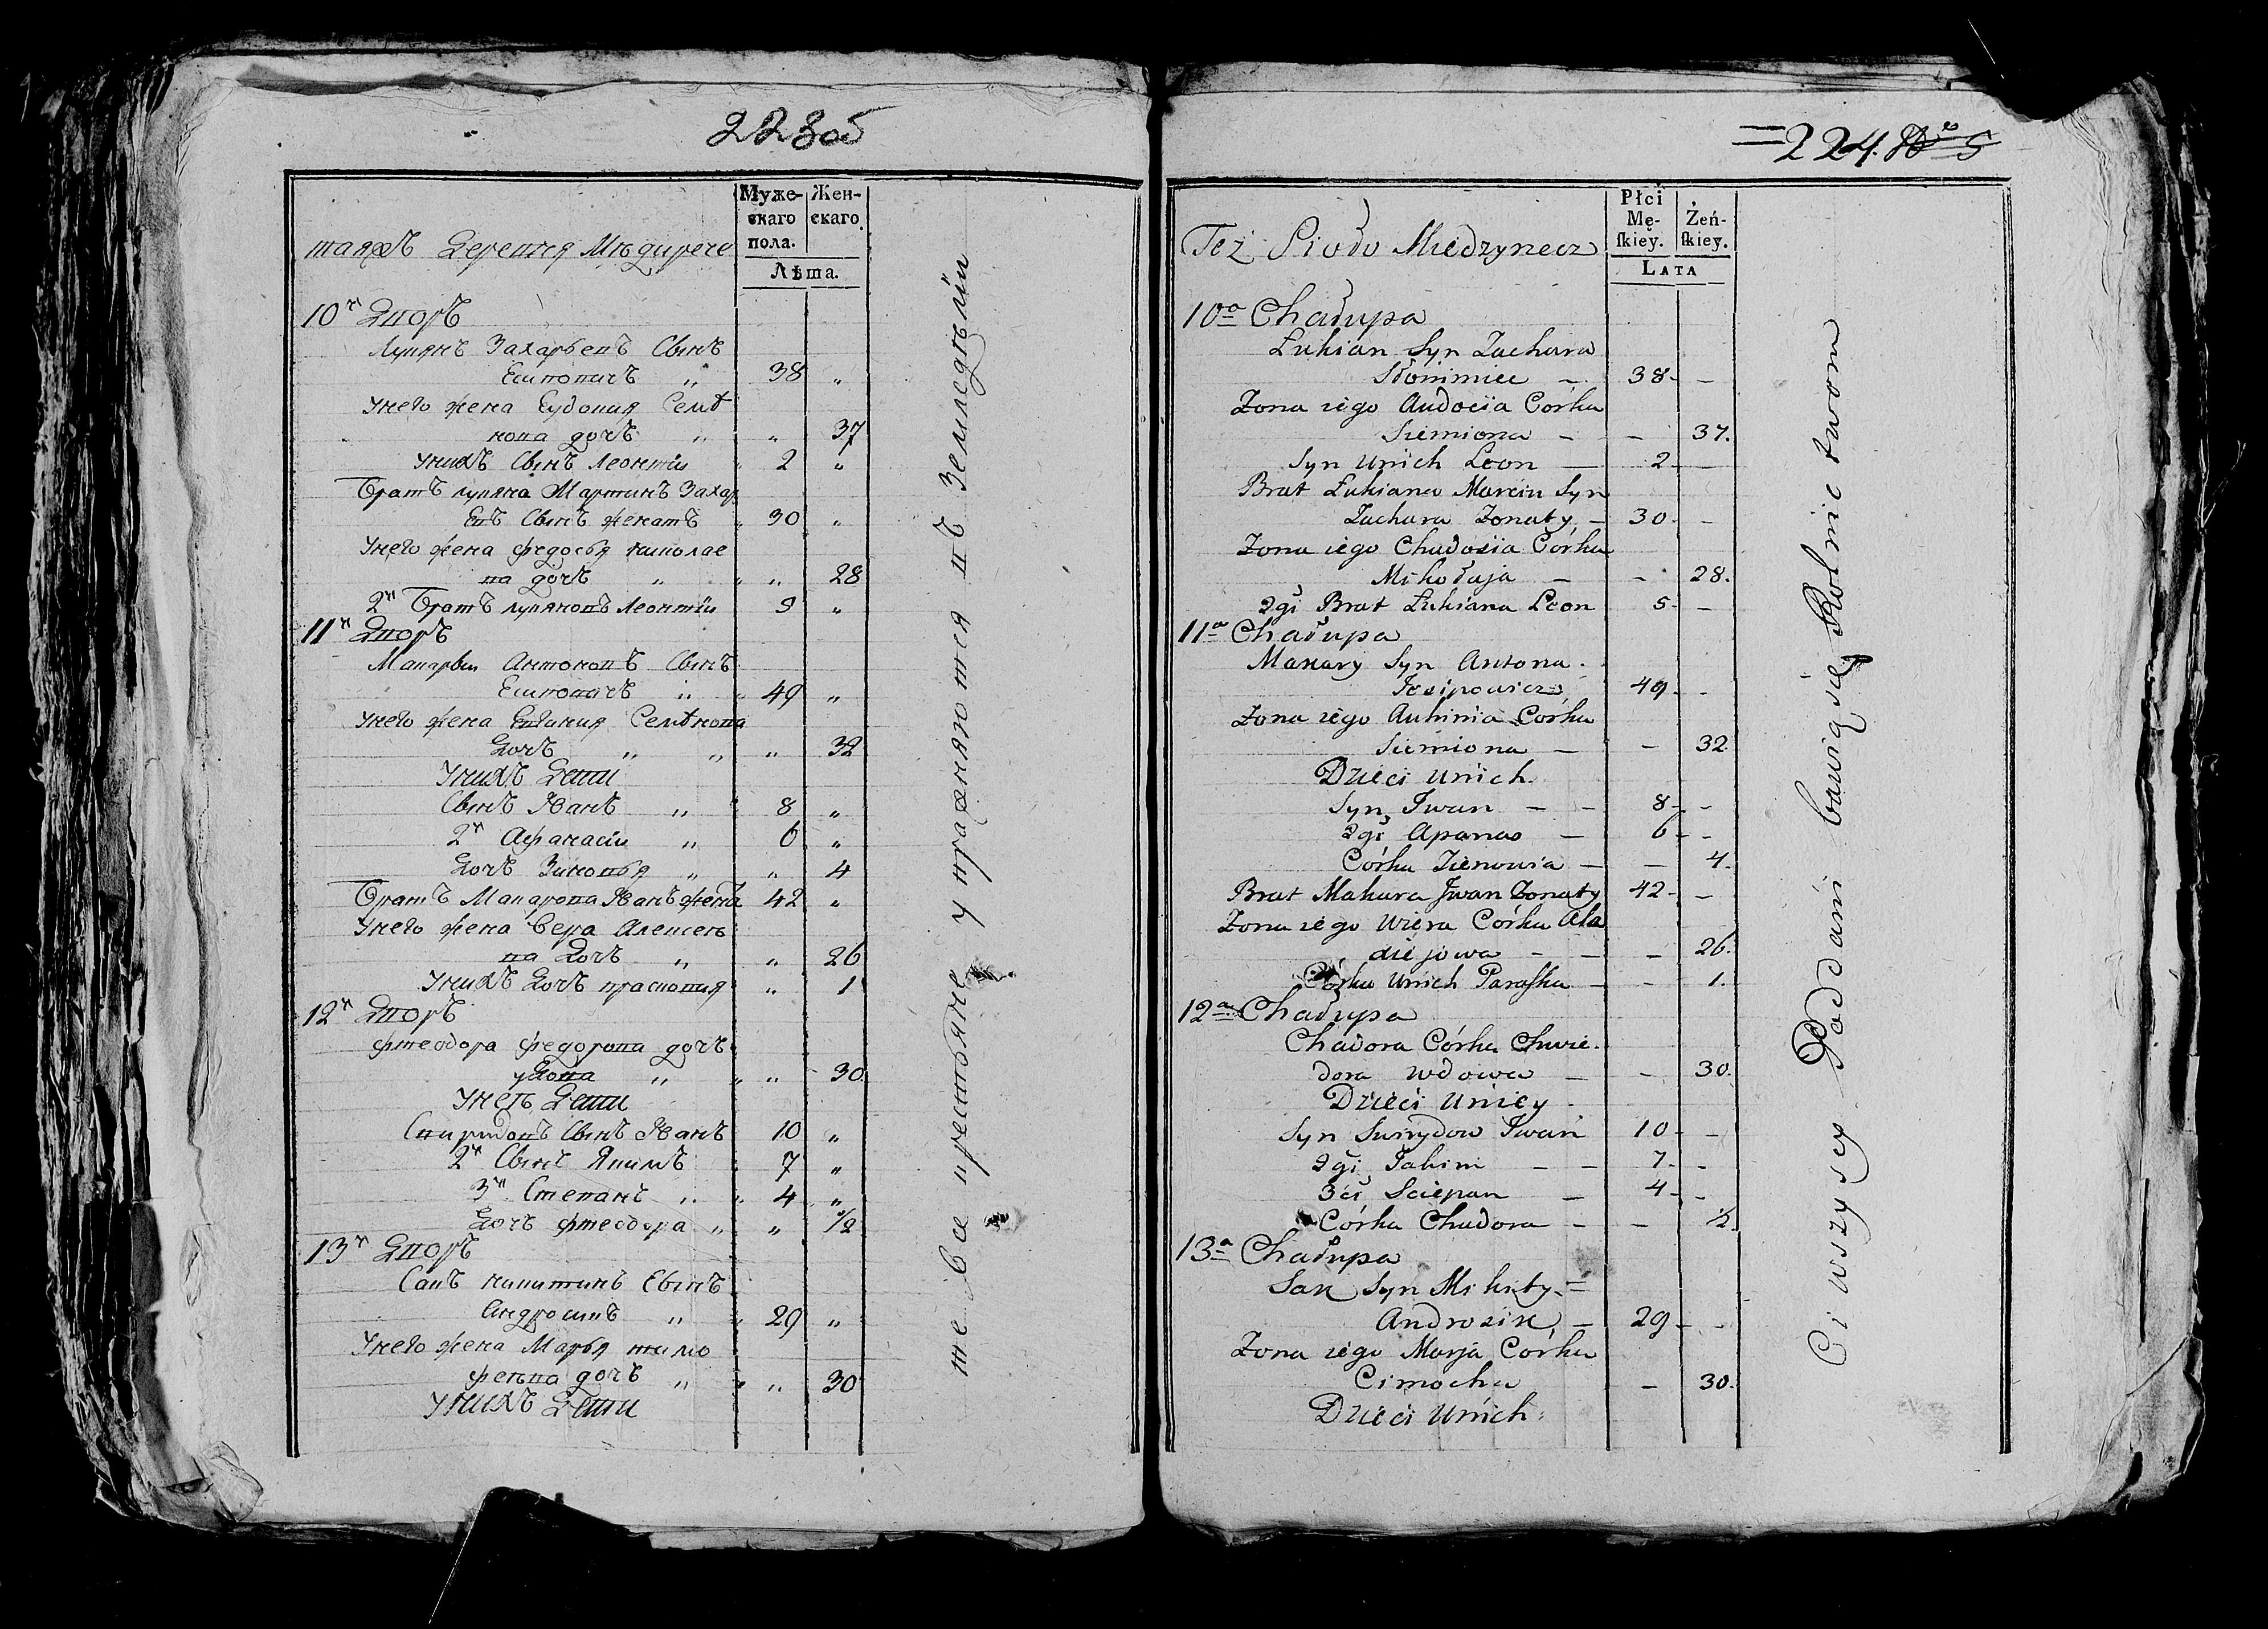 223об
Муже-
скаго
пола.
Жен-
скаго.
Лѣта.
таяжъ Деревня Мѣдирече
10й Дворъ
Лукянъ Захарьевъ Сынъ
Есиповичъ „ 38 „
Унего жена Еудокия Семѣ
нова дочъ „ „ 37
Унихъ Сынъ Леонтiи 2 „
Братъ лукяна Мартинъ Захар
Евъ Сынъ женатъ 30 „
Унего жена федосья николае
ва дочъ „ „ 28
2й Братъ лукяновъ Леонтiи 5 „
11й Дворъ
Макарыи Антоновъ Сынъ
Есиповичъ „ 49 „
Унего жена Евгиния Семѣнова
Дочъ „ „ „ 32
Унихъ Дети
Сынъ Иванъ „ 8 „
2й Афанасiи „ 6 „
Дочъ Зиновья „ „ 4
Братъ Макарова Иванъ женатъ 42 „
Унего жена Вера Алексеѣ
ва Дочъ „ „ 26
Унихъ Дочъ прасковия „ 1
12й Дворъ
фтеодора федорова дочъ
удова „ „ „ 30
Унеѣ Дети
Спиридовъ Сынъ Иванъ 10 „
2й Сынъ Якимъ 7 „
3й Степанъ „ „ 4 „
Дочъ фтеодора „ „ 1/2
13й Дворъ
Сакъ никитинъ Сынъ
Андросикъ „ 29 „
Унего жена Марья тимо
феѣва дочъ „ „ „ 30
Унихъ Дети
те Все крестьяне упражняются въ Земледѣлiи
224. No 5
Płci
Mę-
ſkiey.
Żeń-
ſkiey.
LATA
Też Sioło Miedzyrzecz
10a Chałupa
Łukian Syn Zachara
Słonimiec – 38 – –
Zona iego Audocija Córka
Siemiona – – 37.
Syn Unich Leon – 2 –
Brat Łukiana Marcin Syn
Zachara Zonaty – 30 – –
Zona iego Chadosija Córka
Mikołaja – – 28.
2gi Brat Łukiana Leon 5 – –
11a Chałupa
Makary Syn Antona
Jesipowicz 49 – –
Zona iego Auhinia Córka
Siemiona – – 32.
Dzieci Unich
Syn Iwan – – 8 – –
2gi Apanas – 6 – –
Córka Zienowia – – 4.
Brat Makara Jwan Zonaty 42 – –
Zona iego Wiera Córka Ała
diejowa – – – 26.
Córka Unich Paraſka – – 1.
12a Chałupa
Chadora Córka Chwie-
dora Wdowa – – 30.
Dzieci Uniey
Syn Swirydow Iwan 10 – –
2gi Jakim – – 7 – –
3ci Sciepan – 4 – –
Córka Chadora – – 1/2
13a Chałupa
Sak Syn Mikity =
Androsik – 29 – –
Zona iego Marja Córka
Cimocha – 30.
Dzieci Unich
Ci wszyscy Poddani bawią się Rolnictwom